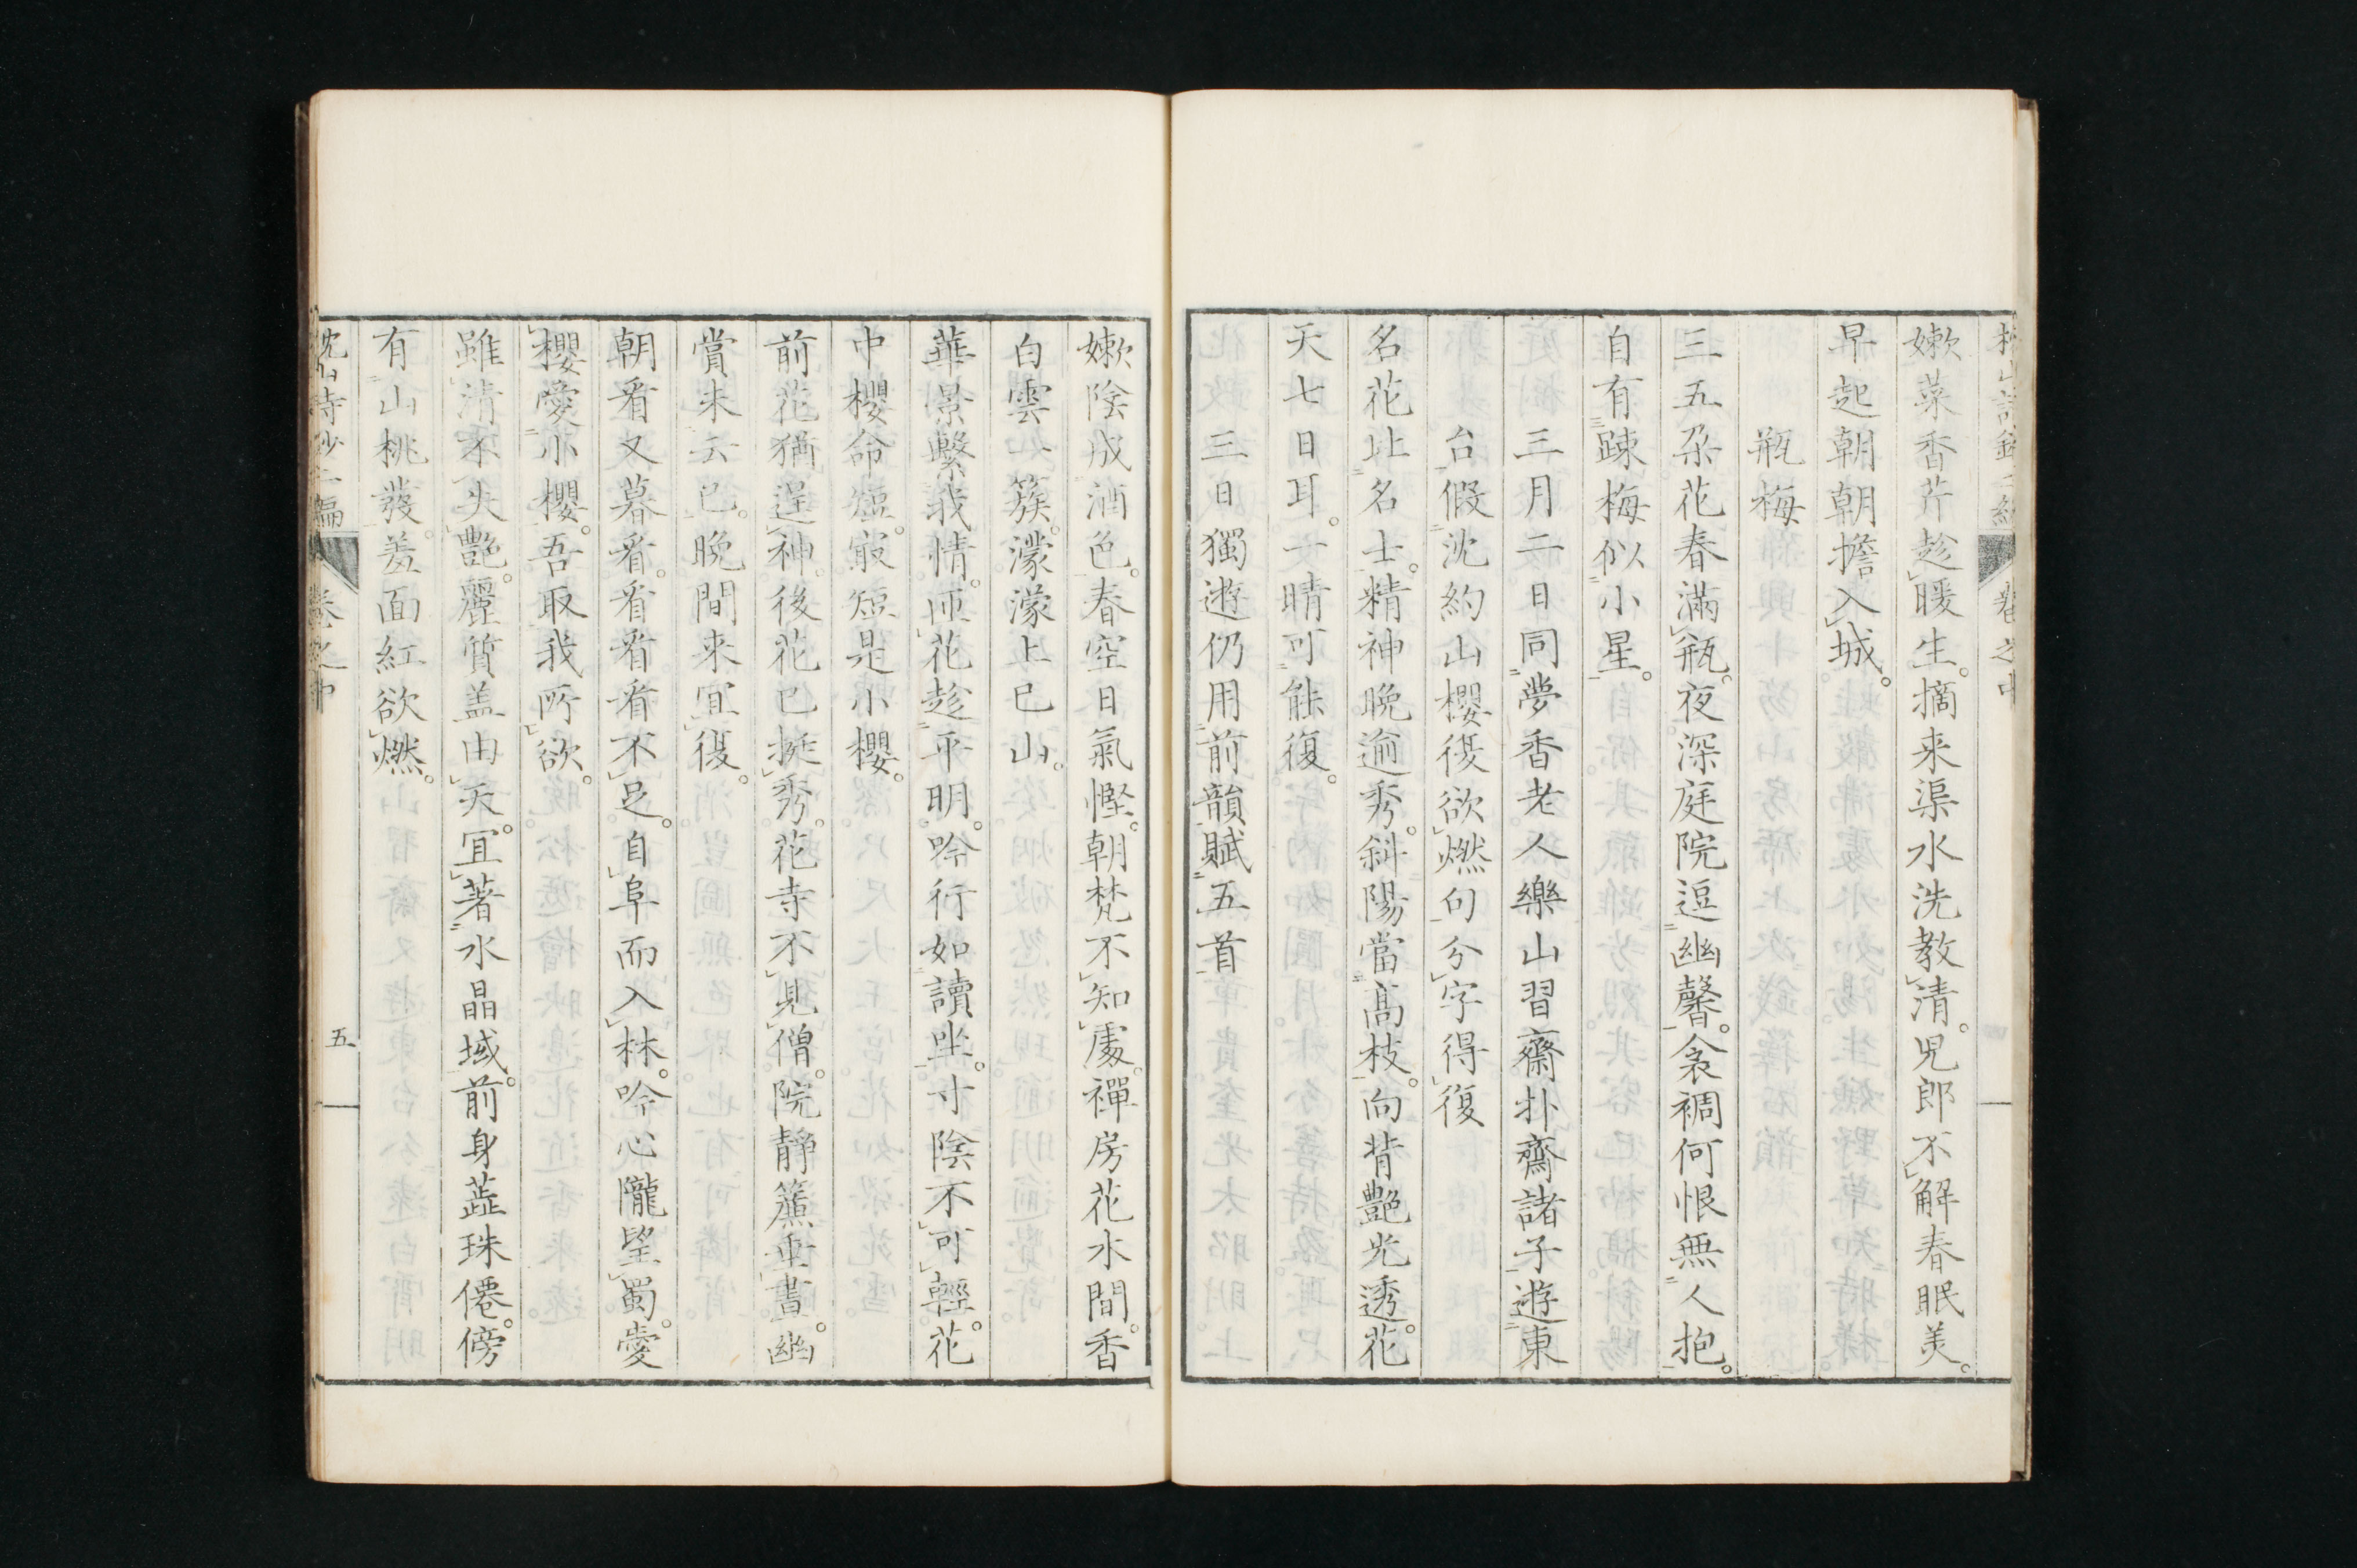 嫩菜香芹趁暖生。摘来渠水洗教清。児郎不解春眠美。
早起朝朝擔入城。
瓶梅
三五朶花春滿瓶。夜深庭院逗幽馨。衾裯何恨無人抱。
自有踈梅似小星。
三月二日同夢香老人樂山習齋扑齋諸子遊東
台假沈約山櫻復欲燃句分字得復
名花比名士。精神晩逾秀。斜陽當髙枝。向背艷光透。花
天七日耳。一晴可能復。
三日獨遊仍用前韻賦五首
嫩陰成酒色。春空日氣慳。朝梵不知處。禪房花水間。香
白雲簇。濛濛上巳山。
華景繫我情。趁平明。吟行如讀坐。寸陰不可輕。花
中櫻命短。㝡短是小櫻。
前花猶逞神。後花已挺秀。花寺不見僧。院靜簾垂晝。幽
賞未云已。晩間来宜復。
朝看又暮看。看看看不足。自阜而入林。吟心隴望蜀。愛
櫻愛小櫻。吾取我所欲。
雖清不失艷。麗質盖由天。宜著水晶域。前身蕋珠僊。傍
有山桃發。羞面紅欲燃。
卷之中
五